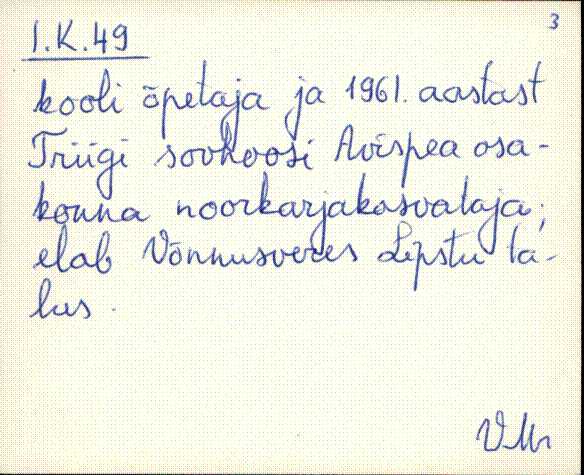 3
I.K.49
kooli õpetaja ja 1961. aastast
Triigi sovhoosi Avispea osa-
konna noorkarjakasvataja;
elab Võnnusveres Lepstu ta-
lus.
VMr